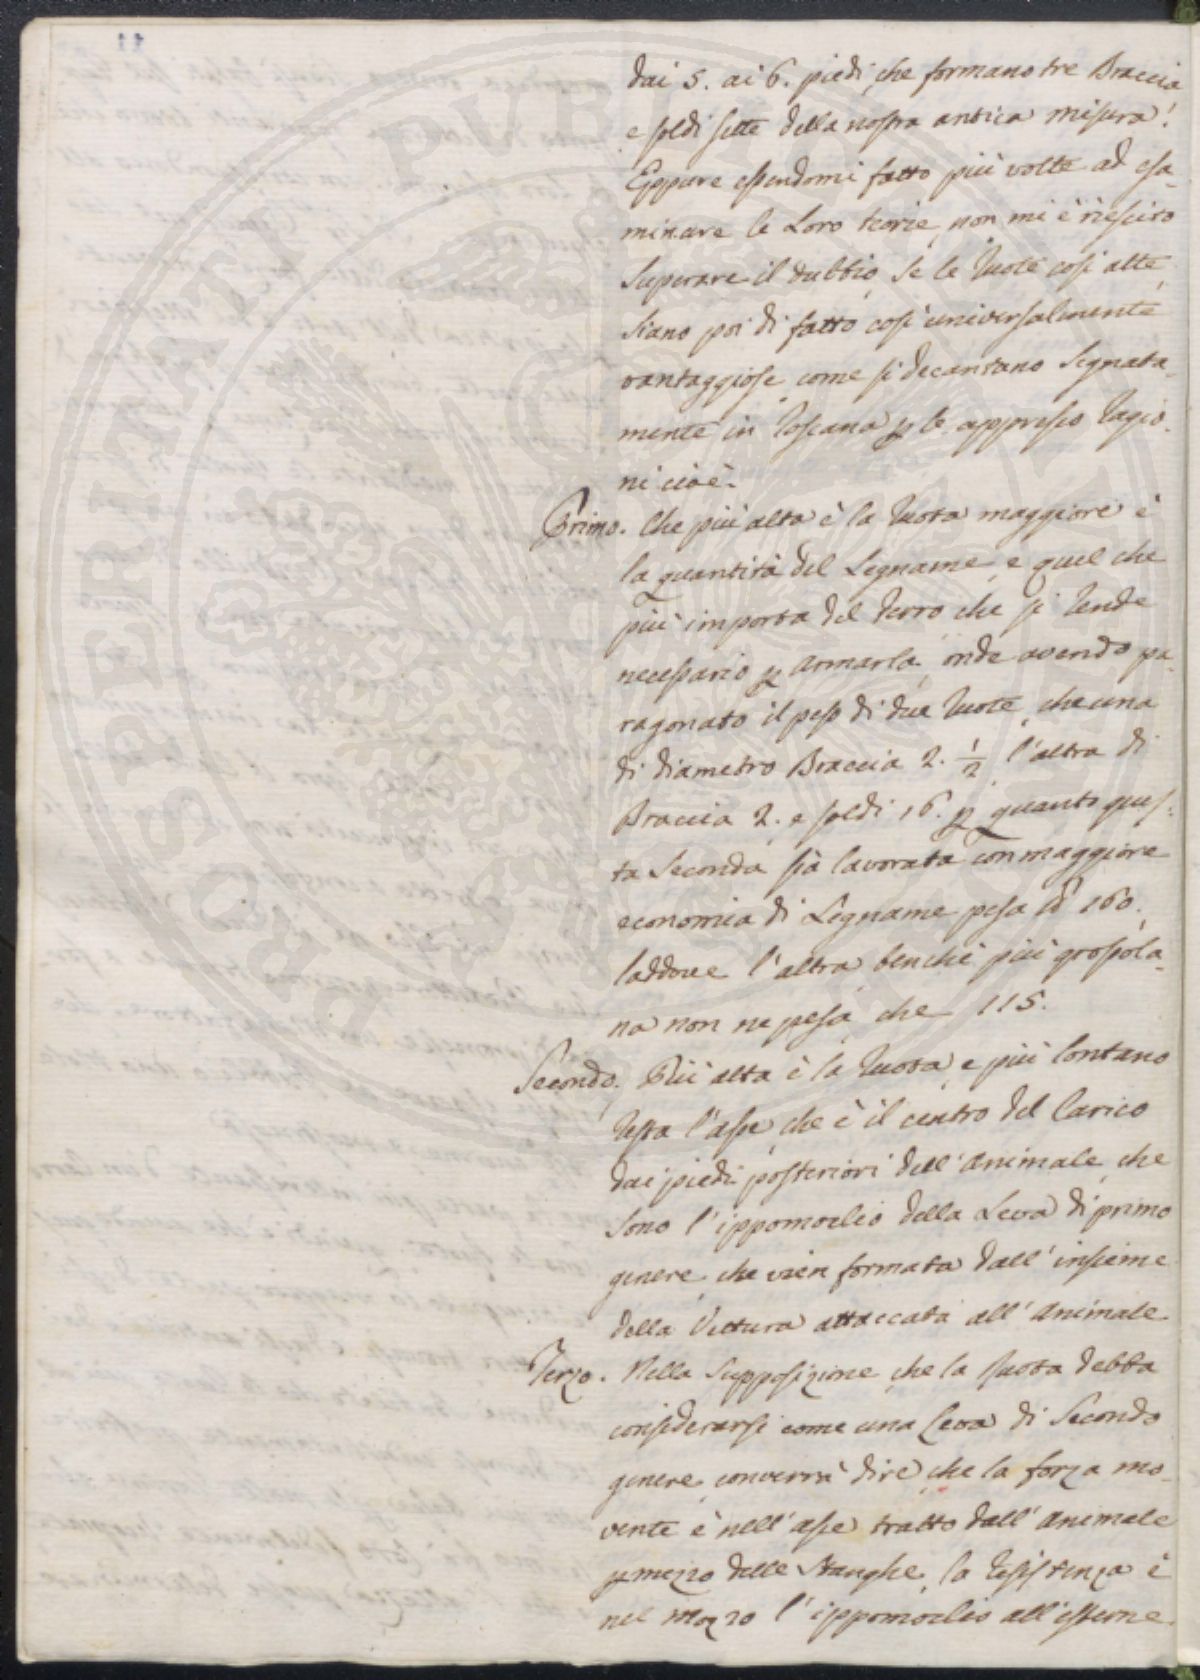 dai 5. ai 6. piedi, che formano tre Braccia
e soldi sette della nostra antica misura!
Eppure essendomi fatto più volte ad esa-
minare le Loro teorie, non mi è riescito
Superare il dubbio, se le Ruote così alte,
siano poi di fatto così universalmente
vantaggiose come si decantano Segnata-
mente in Toscana p le appresso Ragio-
ni cioè.
Primo. Che più alta è la Ruota maggiore è
la quantità del Legname, e quel che
più importa del Ferro che si Rende
necessario p Armarla, onde avendo pa-
ragonato il peso di due Ruote, che una
di diametro Braccia 2. 1/2 l'altra di
Braccia 2. e soldi 16. p quanto ques-
ta Seconda sia lavorata con maggiore
economia di Legname pesa lb 160.
laddove l'altra benchè più grossola-
na non ne pesa che 115.
Secondo. Più alta è la Ruota, e più lontano
Resta l'asse che è il centro del Carico
dai piedi posteriori dell'Animale, che
sono l'ippomoclio della Leva di primo
genere, che vien formata dall'insieme
della Vettura attaccata all'Animale.
Terzo. Nella Supposizione che la Ruota debba
considerarsi come una Leva di Secondo
genere, converrà dire, che la forza mo-
vente è nell'asse tratto dall'Animale
p mezzo delle Stanghe, la Resistenza è
nel mozzo l'ippomoclio all'esterne
PROSPERITATI PUBLICAE